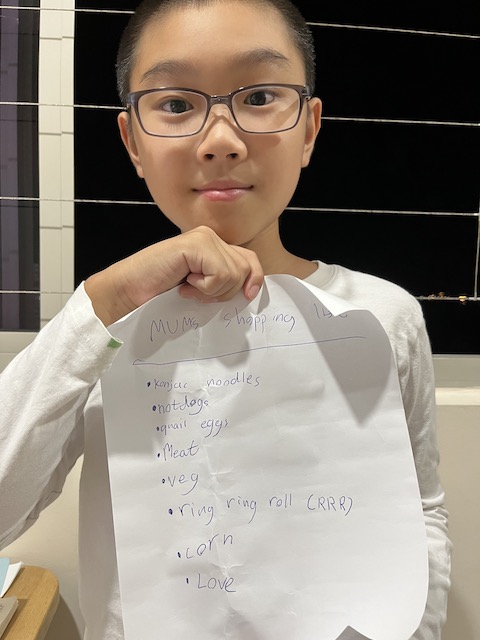 MUMs shopping list
• konjac noodles
• hotdogs
• quail eggs
• Meat
• veg
• ring ring roll (RRR)
• corn
• Love